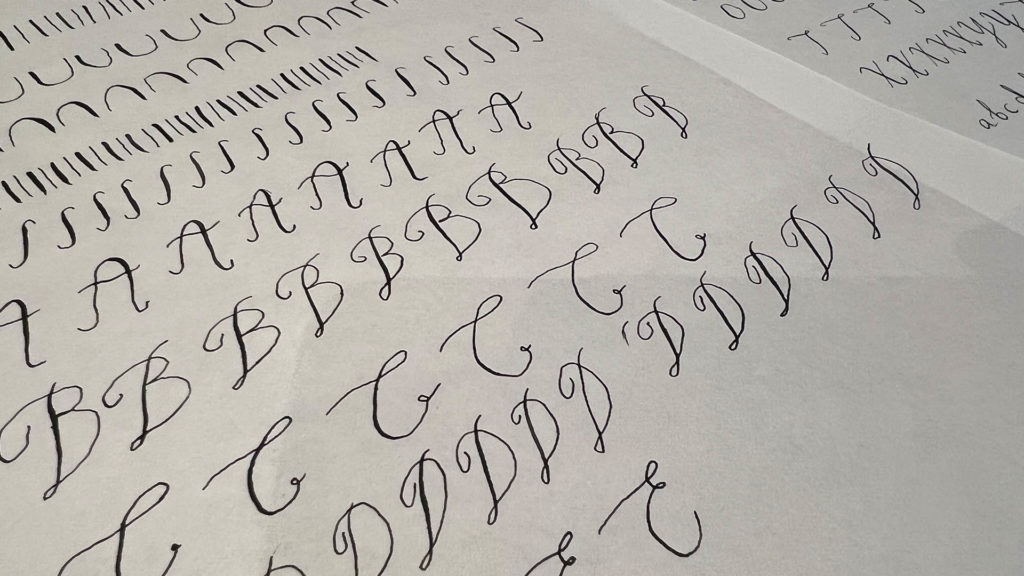 A A A A A A A A
B B B B B B B B B B
C C C C C C
D D D D D D D D D D D
E E
T T T
abcd